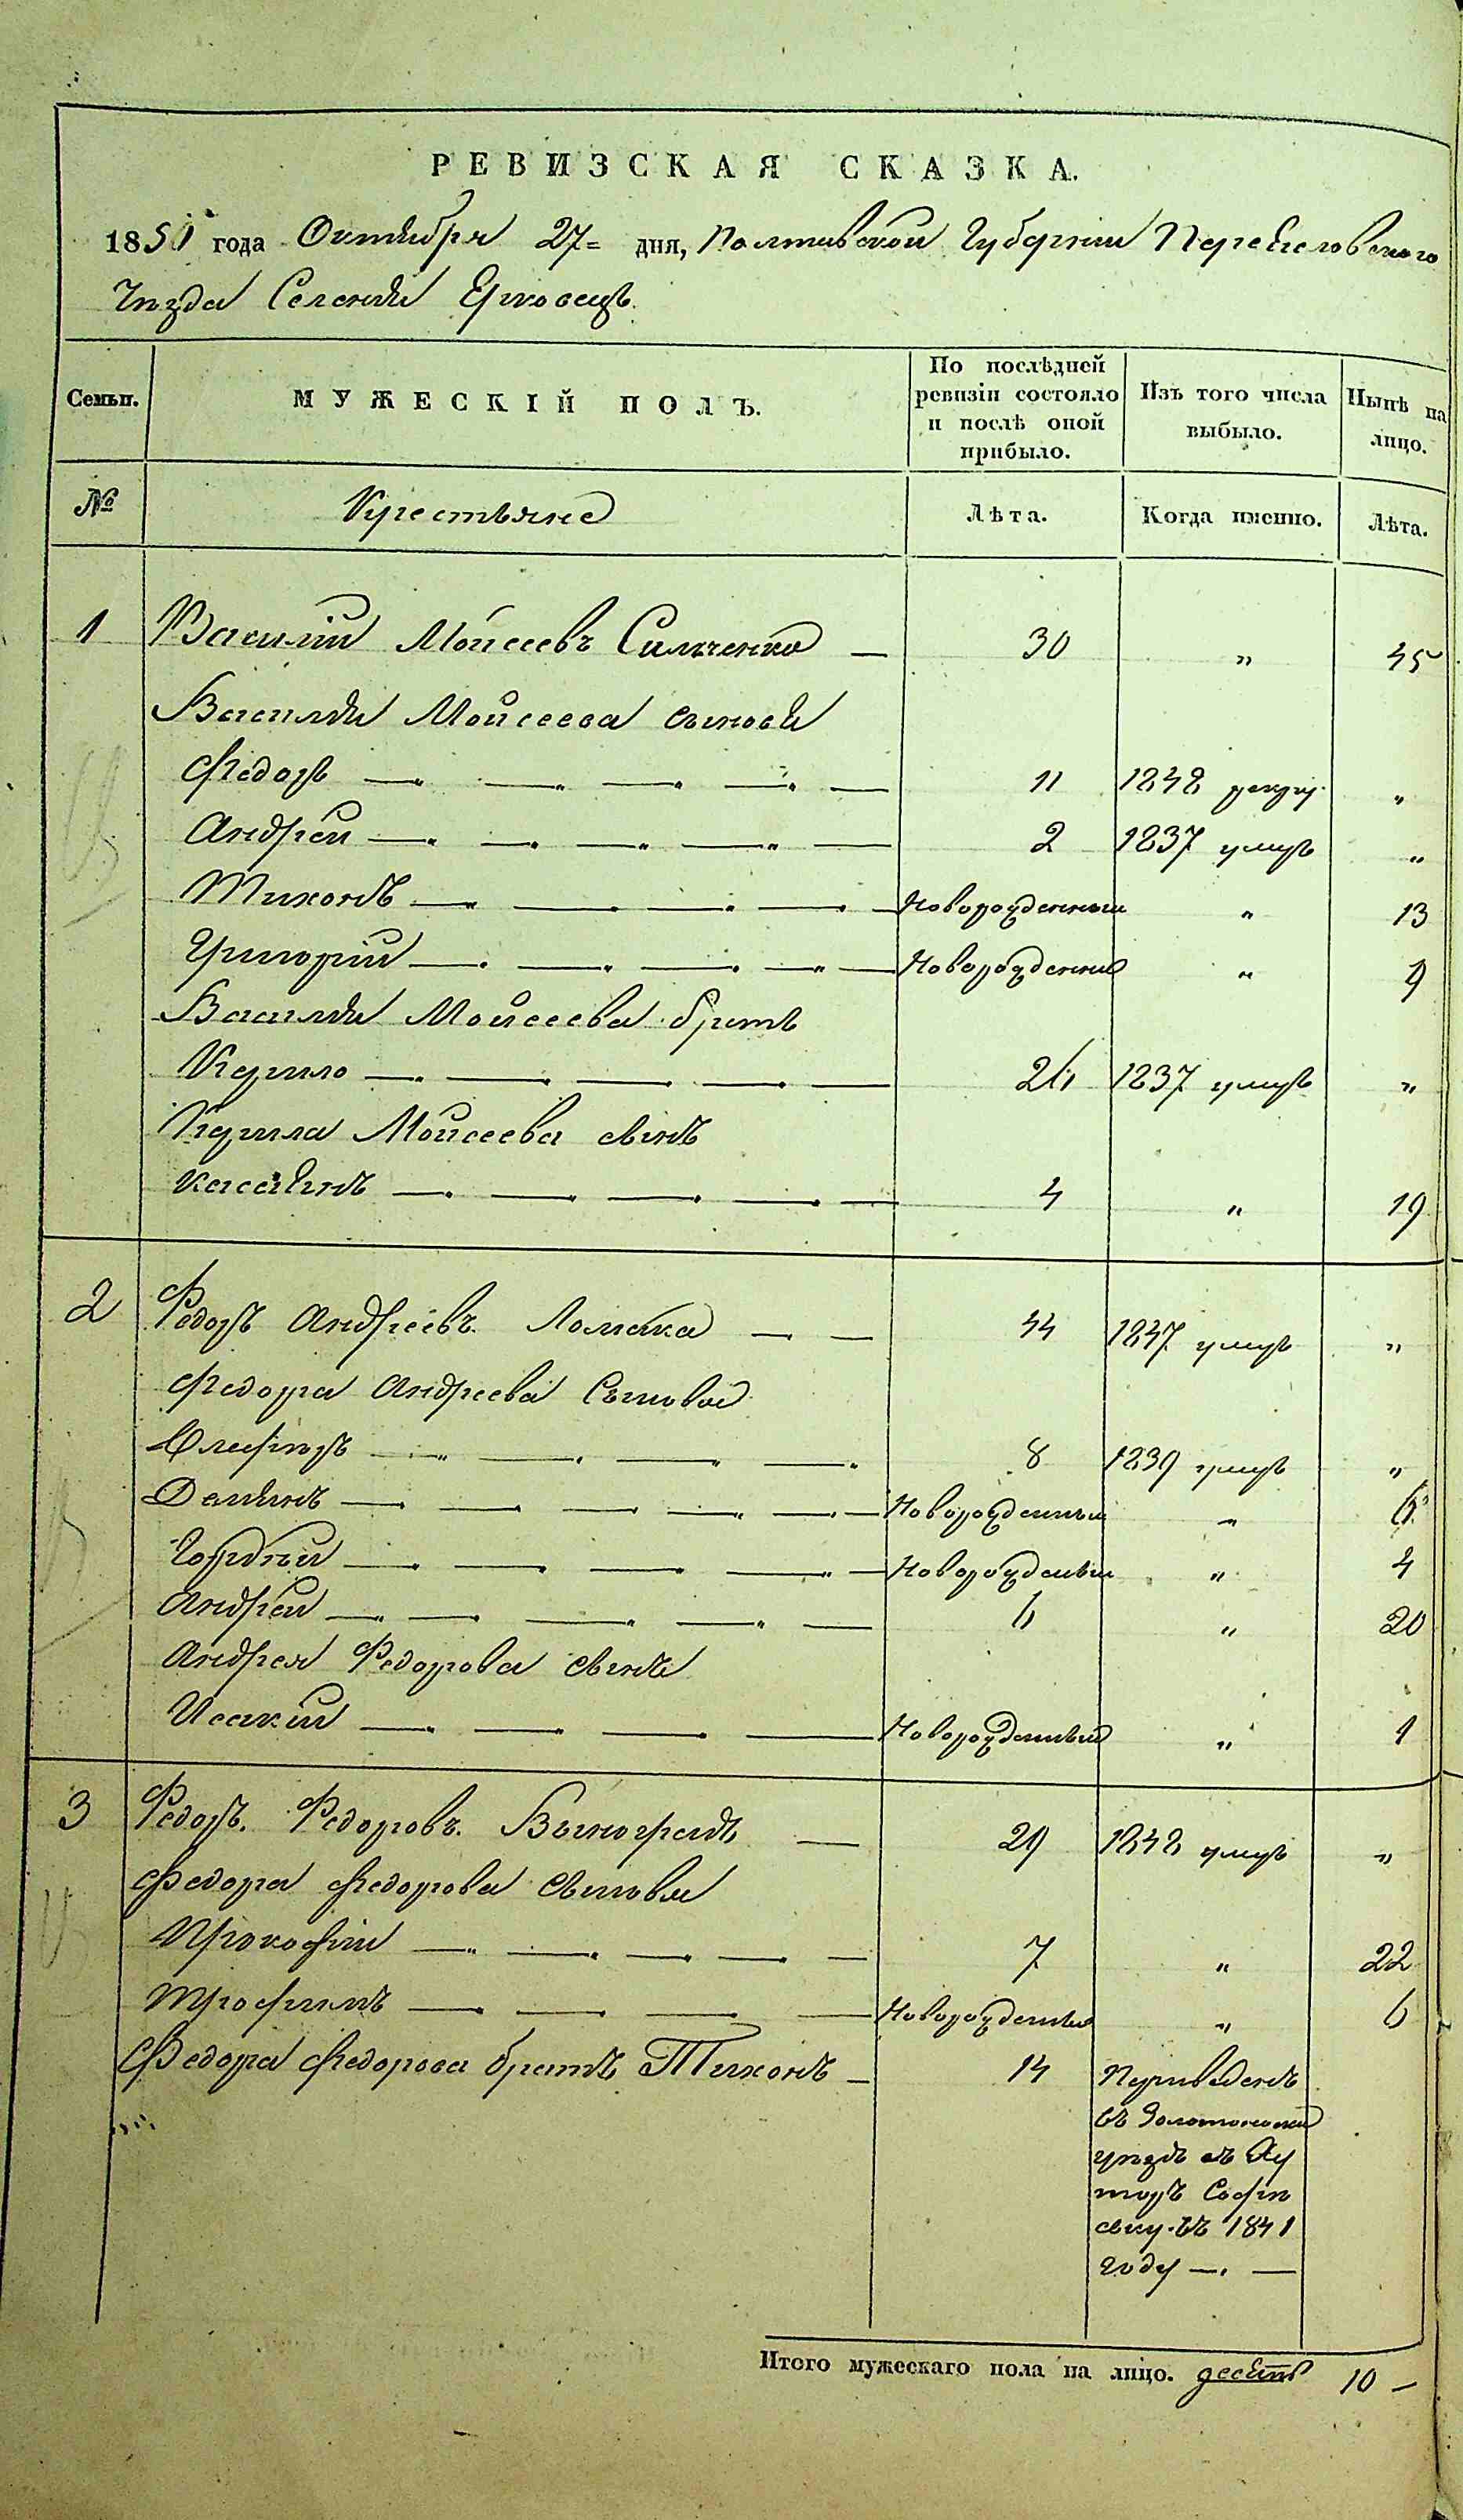 РЕВИЗСКАЯ СКАЗКА.
1850 года Октября 27= дня, Полтавской Губернии Переяславского
Уезда Селения Ерковецъ.
Семьи. МУЖЕСКІЙ ПОЛЪ. По послѣдней ревизіи состояло и послѣ оной прибыло. Изъ того числа выбыло. Нынѣ на лицо.
№ Крестьяне Лѣта. Когда именно. Лѣта.
1 Василій Моисеевъ Сильченко — 30 „ 45
Василия Моисеева сыновья
Федоръ — 11 1848 рекру. „
Андрей — 2 1837 умеръ „
Тихонъ — Новорожденный „ 13
Григорій — Новорожденный „ 9
Василия Моисеева братъ
Кирило — 26 1837 умеръ „
Кирила Моисеева сынъ
Касьянъ — 4 „ 19
2 Федоръ Андреевъ Ломака — 44 1847 умеръ „
Федора Андреева Сыновья
8 1839 умеръ „
Демьянъ — Новорожденный „ 6
Гордей — Новорожденный „ 4
Андрей — 6 „ 20
Андрея Федорова сынъ
Исакий — Новорожденный „ 1
3 Федоръ Федоровъ Виноградъ — 29 1848 умеръ „
Федора Федорова сыновья
Прокофій — 7 „ 22
Трофимъ — Новорожденный „ 6
Федора Федорова братъ Тихонъ — 14 Переведенъ
въ Золотоношский
уездъ въ Ху
торъ Софи
евку въ 1841
году —
Итого мужескаго пола на лицо. десять 10 —